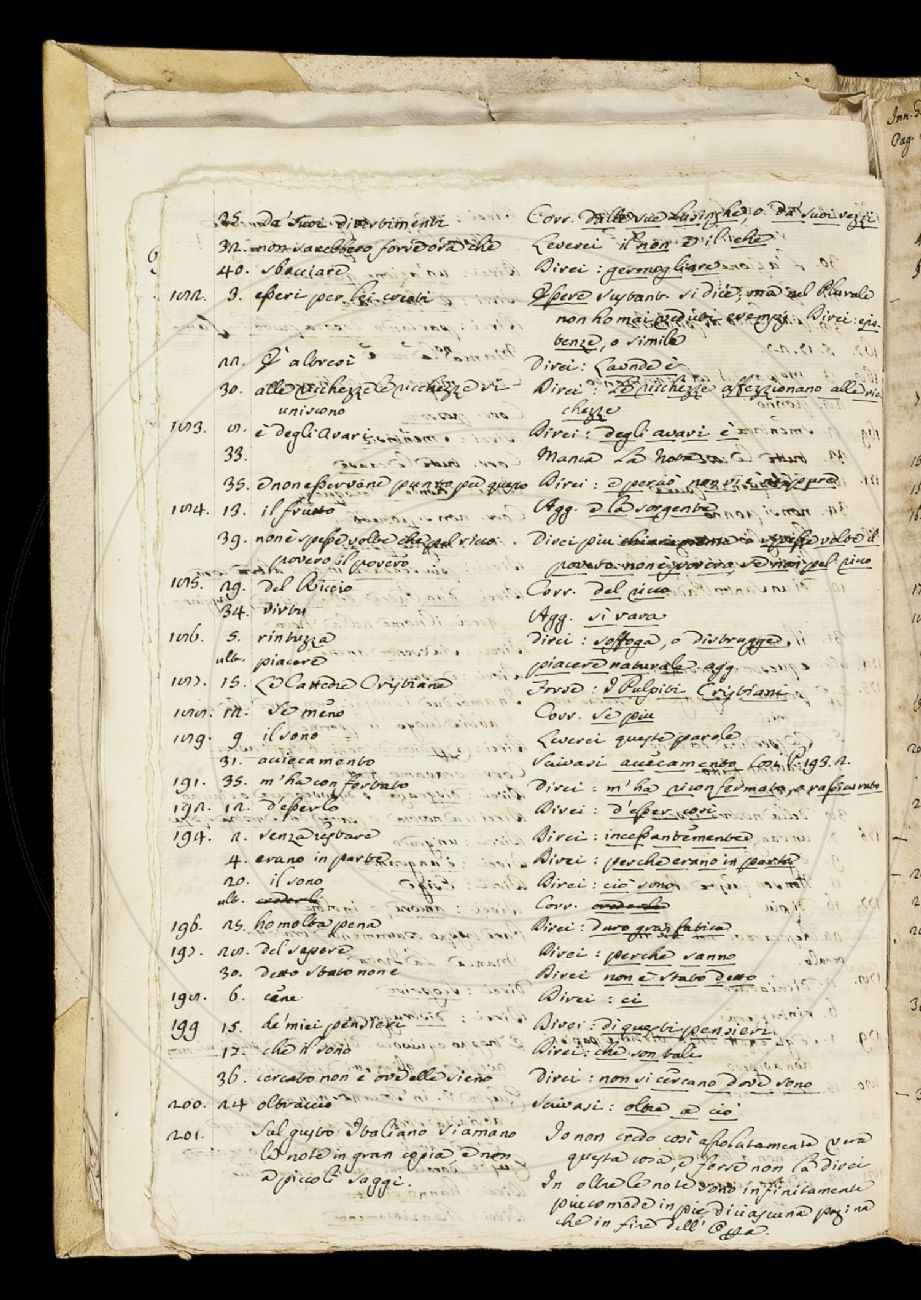 25. da' suoi divertimenti Corr. dalle sue lusinghe, o da' suoi vezzi
32. non sarebbero forse ora che Leverei il non e il che
40. sbocciare Direi: germogliare
182. 3. esseri per lei creati Essere sustant. si dice; ma nel Plurale
non ho mai veduti esempj. Direi: esis-
tenze, o simile
22. E' altresì Direi: Laonde è
30. alle ricchezze le ricchezze si Direi: Le ricchezze affezzionano alle ric
uniscono chezze
183. 8. è degli Avari Direi: degli avari è
33. Manca la Nota
35. e non esservene punto per questo Direi: e perciò non vi è neppure
184. 13. il frutto Agg. e la sorgente
39. non è spesse volte che pel ricco Direi più spesse volte il
povero il povero povero non è povero, se non pel ricco
185. 29. del Riccio Corr. del ricco
34. virtu Agg. si rara
186. 5. rintuzza Direi: soffoga, o distrugge.
ult. piacere piacere naturale agg.
187. 15. Le Cattedre Cristiane Forse: I Pulpiti Cristiani
188. 12. Se meno Corr. se più
189. 9 il sono Leverei queste parole
31. acciecamento Scrivasi accecamento. Così P. 193. 2.
191. 35. m'ha confortato Direi: m'ha riconfermato, e rassicurato
192. 12. d'esserlo Direi: d'esser così
194. 2. senza restare Direi: incessantemente
4. erano in parte Direi: perchè erano in parte
20. il sono Direi: ciò sono
ult. Corr.
196. 25. ho molta pena Direi: duro gran fatica
197. 28. del sapere Direi: perchè sanno
30. detto stato non è Direi non è stato detto
198. 6. cene Direi: ci
199 15. de' miei pensieri Direi: di questi pensieri
17. che il sono Direi: che son tali
36. cercato non è ove elle sieno Direi: non si cercano dove sono
200. 24 oltracciò Scrivasi: oltre a ciò
201. Sul gusto Italiano si amano Io non credo così assolutamente vera
le note in gran copia e non questa cosa, e forse non la direi
a piccoli saggi. In oltre le note sono infinitamente
piu comode in piè di ciascuna pagina
che in fine dell'Opa.